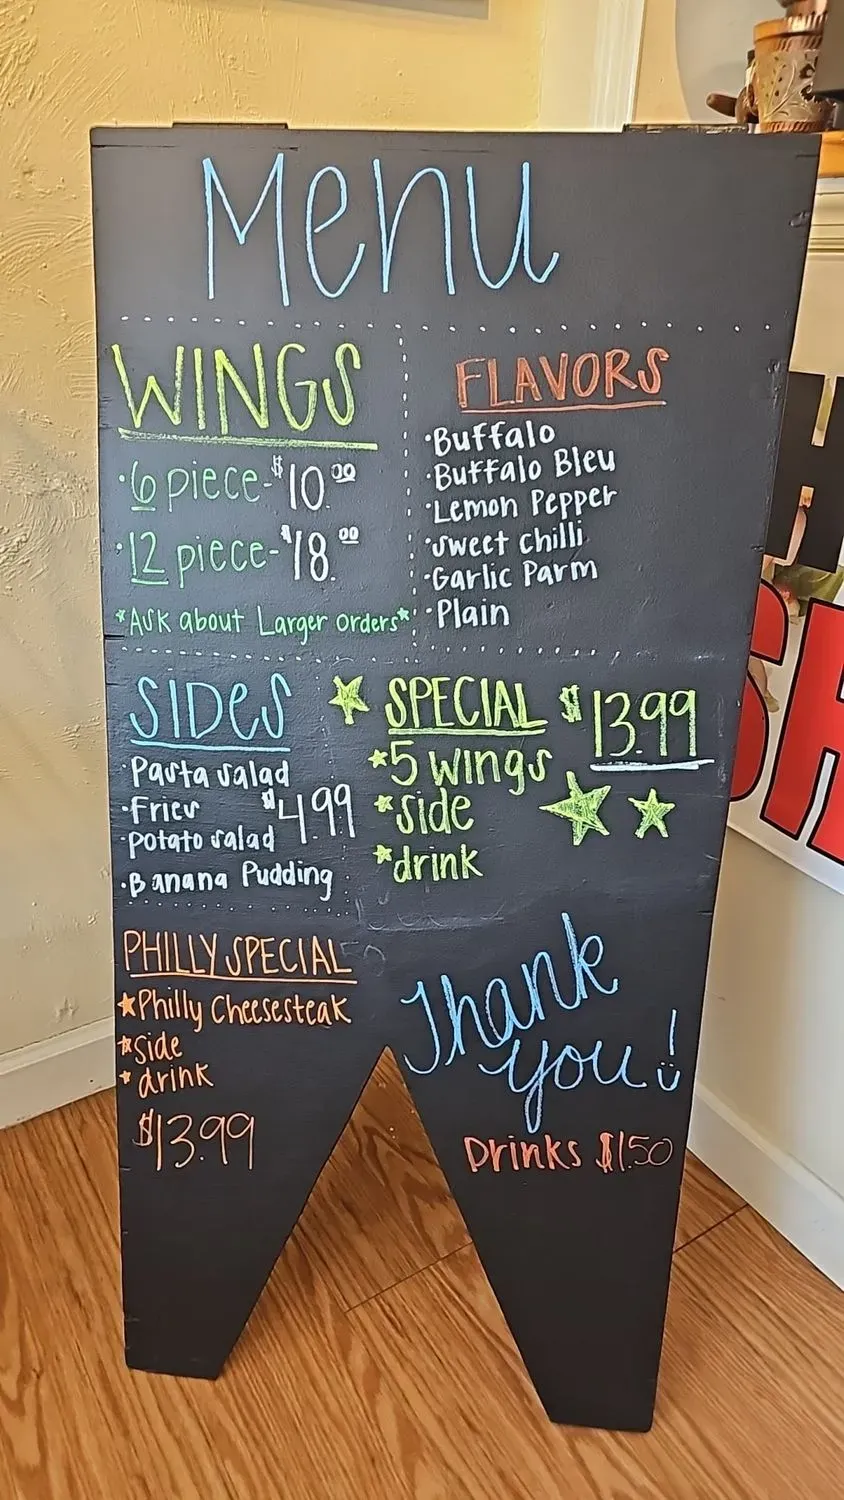 Menu
WINGS
·6 piece-$10.00
·12 piece-$18.00
*Ask about Larger orders*
FLAVORS
·Buffalo
·Buffalo Bleu
·Lemon Pepper
·sweet chilli
·Garlic Parm
·Plain
SIDES
·Pasta salad
·Fries $4.99
·potato salad
·Banana Pudding
SPECIAL $13.99
*5 wings
*side
*drink
PHILLY SPECIAL
*Philly Cheesesteak
*side
*drink
$13.99
Thank
you!
Drinks $1.50